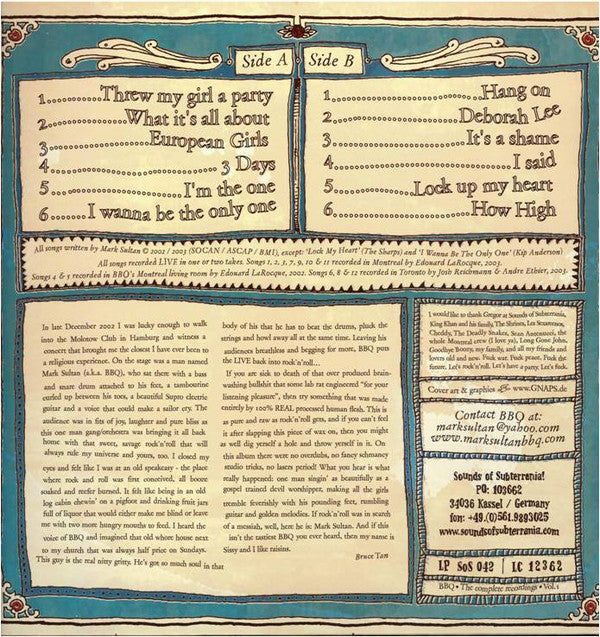 Side A
1. Threw my girl a party
2. What it's all about
3 European Girls
4 3 Days
5 I'm the one
6 I wanna be the only one
Side B
1. Hang on
2. Deborah Lee
3. It's a shame
4. I said
5. Lock up my heart
6. How High
All songs written by Mark Sultan © 2002 / 2003 (SOCAN / ASCAP / BMI), except: 'Lock My Heart' (The Sharps) and 'I Wanna Be The Only One' (Kip Anderson)
All songs recorded LIVE in one or two takes. Songs 1, 2, 3, 7, 9, 10 & 11 recorded in Montreal by Edouard LaRocque, 2003.
Songs 4 & 5 recorded in BBQ's Montreal living room by Edouard LaRocque, 2002. Songs 6, 8 & 12 recorded in Toronto by Josh Reichmann & Andre Ethier, 2003.
In late December 2002 I was lucky enough to walk
into the Molotow Club in Hamburg and witness a
concert that brought me the closest I have ever been to
a religious experience. On the stage was a man named
Mark Sultan (a.k.a. BBQ), who sat there with a bass
and snare drum attached to his feet, a tambourine
curled up between his toes, a beautiful Supro electric
guitar and a voice that could make a sailor cry. The
audience was in fits of joy, laughter and pure bliss as
this one man gang/orchestra was bringing it all back
home with that sweet, savage rock'n'roll that will
always rule my universe and yours, too. I closed my
eyes and felt like I was at an old speakeasy - the place
where rock and roll was first conceived, all booze
soaked and reefer burned. It felt like being in an old
log cabin chewin' on a pigfoot and drinking fruit jars
full of liquor that would either make me blind or leave
me with two more hungry mouths to feed. I heard the
voice of BBQ and imagined that old whore house next
to my church that was always half price on Sundays.
This guy is the real nitty gritty. He's got so much soul in that
body of his that he has to beat the drums, pluck the
strings and howl away all at the same time. Leaving his
audiences breathless and begging for more, BBQ puts
the LIVE back into rock'n'roll....
If you are sick to death of that over produced brain-
washing bullshit that some lab rat engineered "for your
listening pleasure", then try something that was made
entirely by 100% REAL processed human flesh. This is
as pure and raw as rock'n'roll gets, and if you can't feel
it after slapping this piece of wax on, then you might
as well dig yourself a hole and throw yourself in it. On
this album there were no overdubs, no fancy schmancy
studio tricks, no lasers period! What you hear is what
really happened: one man singin' as beautifully as a
gospel trained devil worshipper, making all the girls
tremble feverishly with his pounding feet, rumbling
guitar and golden melodies. If rock'n'roll was in search
of a messiah, well, here he is: Mark Sultan. And if this
isn't the tastiest BBQ you ever heard, then my name is
Sissy and I like raisins.
Bruce Tan
I would like to thank Gregor at Sounds of Subterrania,
King Khan and his family, The Shrines, Les Sexareenos,
Cheddy, The Deadly Snakes, Sean Antenucci, the
whole Montreal crew (I love ya), Long Gone John,
Goodbye Boozy, my family, and all my friends and
lovers old and new. Fuck war. Fuck peace. Fuck the
future. Let's rock'n'roll. Let's have a party. Let's fuck.
Cover art & graphics www.GNAPS.de
Contact BBQ at:
marksultan@yahoo.com
www.marksultanbbq.com
Sounds of Subterrania!
PO: 103662
34036 Kassel / Germany
fon: +49.(0)561.9893025
www.soundsofsubterrania.com
LP SoS 042 | LC 12362
BBQ • The complete recordings • Vol.1